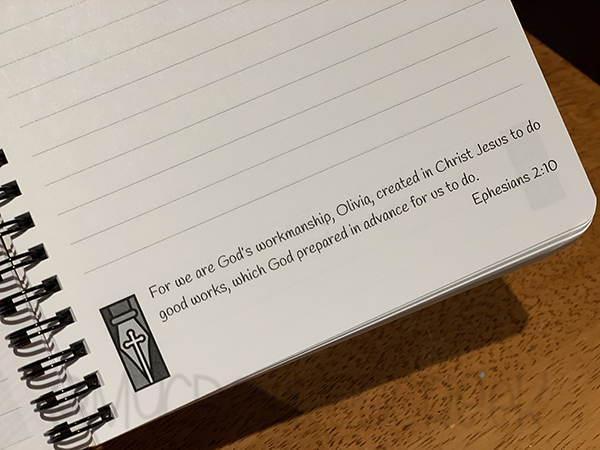 For we are God's workmanship, Olivia, created in Christ Jesus to do
good works, which God prepared in advance for us to do.
Ephesians 2:10